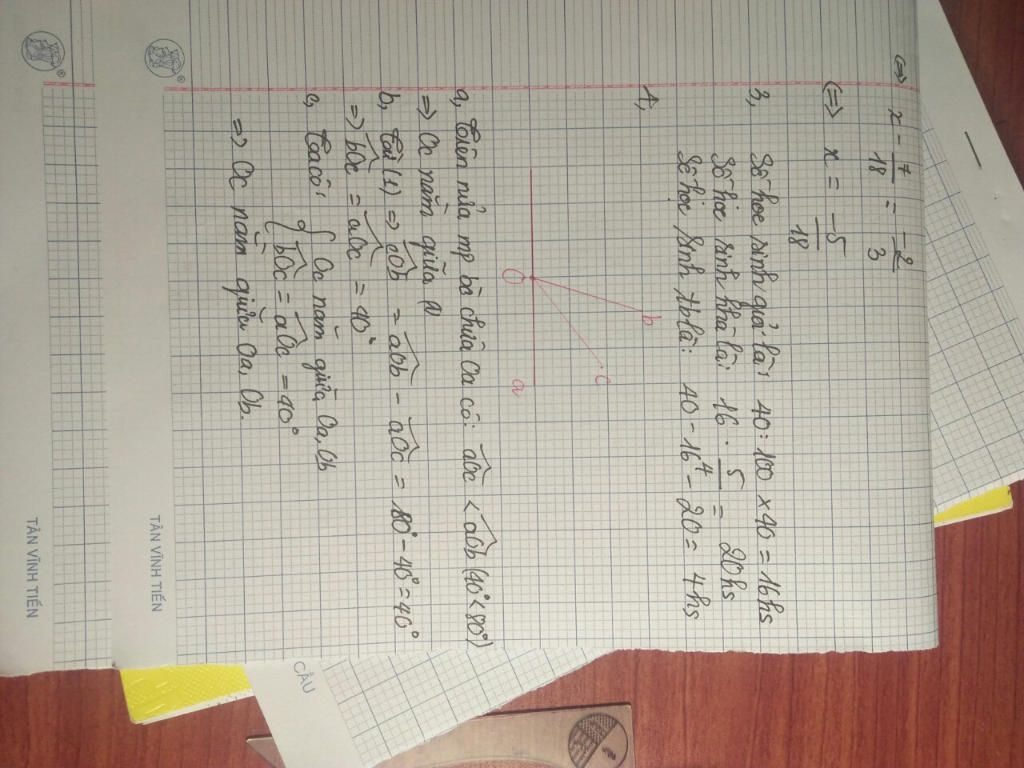 <=> x - 7/18 = -2/3
<=> x = -5/18
3, Số học sinh giỏi là: 40 : 100 x 40 = 16 hs
Số học sinh khá là: 16 . 5/4 = 20 hs
Số học sinh tb là: 40 - 16 - 20 = 4 hs
4,
b
c
O
a
a, Trên nửa mp bờ chứa Oa có: aOc < aOb (40° < 80°)
=> Oc nằm giữa
b, Từ (1) => cOb = aOb - aOc = 80° - 40° = 40°
=> bOc = aOc = 40°
c, Ta có: { Oc nằm giữa Oa, Ob
{ bOc = aOc = 40°
=> Oc nằm giữa Oa, Ob.
®
TÂN VĨNH TIẾN
®
TÂN VĨNH TIẾN
CÂU